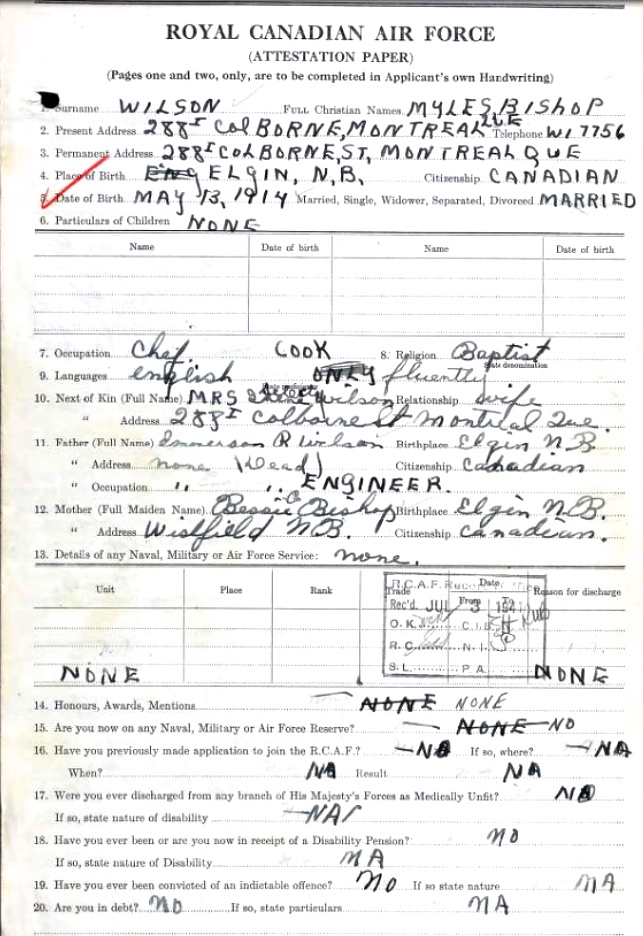 ROYAL CANADIAN AIR FORCE
(ATTESTATION PAPER)
(Pages one and two, only, are to be completed in Applicant's own Handwriting)
1. Surname WILSON Full Christian Names MYLES, BISHOP
2. Present Address 288I COLBORNE, MONTREAL QUE Telephone WI 7756
3. Permanent Address 288I COLBORNE, ST, MONTREAL QUE
4. Place of Birth ENG ELGIN, N, B, Citizenship CANADIAN
5. Date of Birth MAY 13, 1914 Married, Single, Widower, Separated, Divorced MARRIED
6. Particulars of Children NONE
Name Date of birth Name Date of birth
7. Occupation Chef. COOK 8. Religion Baptist
State denomination
9. Languages english ONLY fluently
10. Next of Kin (Full Name) MRS Wilson Relationship wife
" Address 288I Colborne St Montreal Que.
11. Father (Full Name) Emmerson R Wilson Birthplace Elgin N B
" Address none (Dead) Citizenship Canadian
" Occupation " .. ENGINEER.
12. Mother (Full Maiden Name) Bessie C Bishop Birthplace Elgin N.B.
" Address N.B. Citizenship Canadian.
13. Details of any Naval, Military or Air Force Service: none.
Unit Place Rank Trade Date Reason for discharge
From To
R.C.A.F.
Rec'd. JUL 3 1941
O.K. C.I.B.
R.C. N.I.
S.L. P.A.
NONE NONE
14. Honours, Awards, Mentions NONE NONE
15. Are you now on any Naval, Military or Air Force Reserve? NONE NO
16. Have you previously made application to join the R.C.A.F.? NO If so, where? NA
When? NA Result NA
17. Were you ever discharged from any branch of His Majesty's Forces as Medically Unfit? NO
If so, state nature of disability NA
18. Have you ever been or are you now in receipt of a Disability Pension? NO
If so, state nature of Disability NA
19. Have you ever been convicted of an indictable offence? NO If so state nature NA
20. Are you in debt? NO If so, state particulars NA